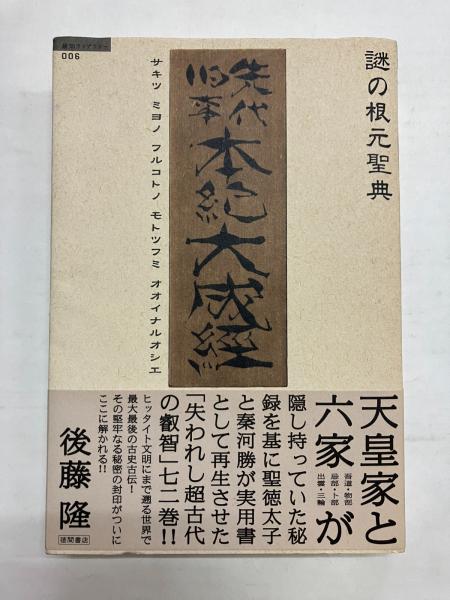 006
謎の根元聖典
先代
旧事
本紀大成経
サキツ ミヨノ フルコトノ モトツフミ オオイナルオシエ
天皇家と
六家が
吾道・物部
忌部・卜部
出雲・三輪
隠し持っていた秘
録を基に聖徳太子
と秦河勝が実用書
として再生させた
「失われし超古代
の叡智」七二巻!!
ヒッタイト文明にまで遡る世界で
最大最後の古史古伝！
その堅牢なる秘密の封印がついに
ここに解かれる!!
後藤隆
徳間書店